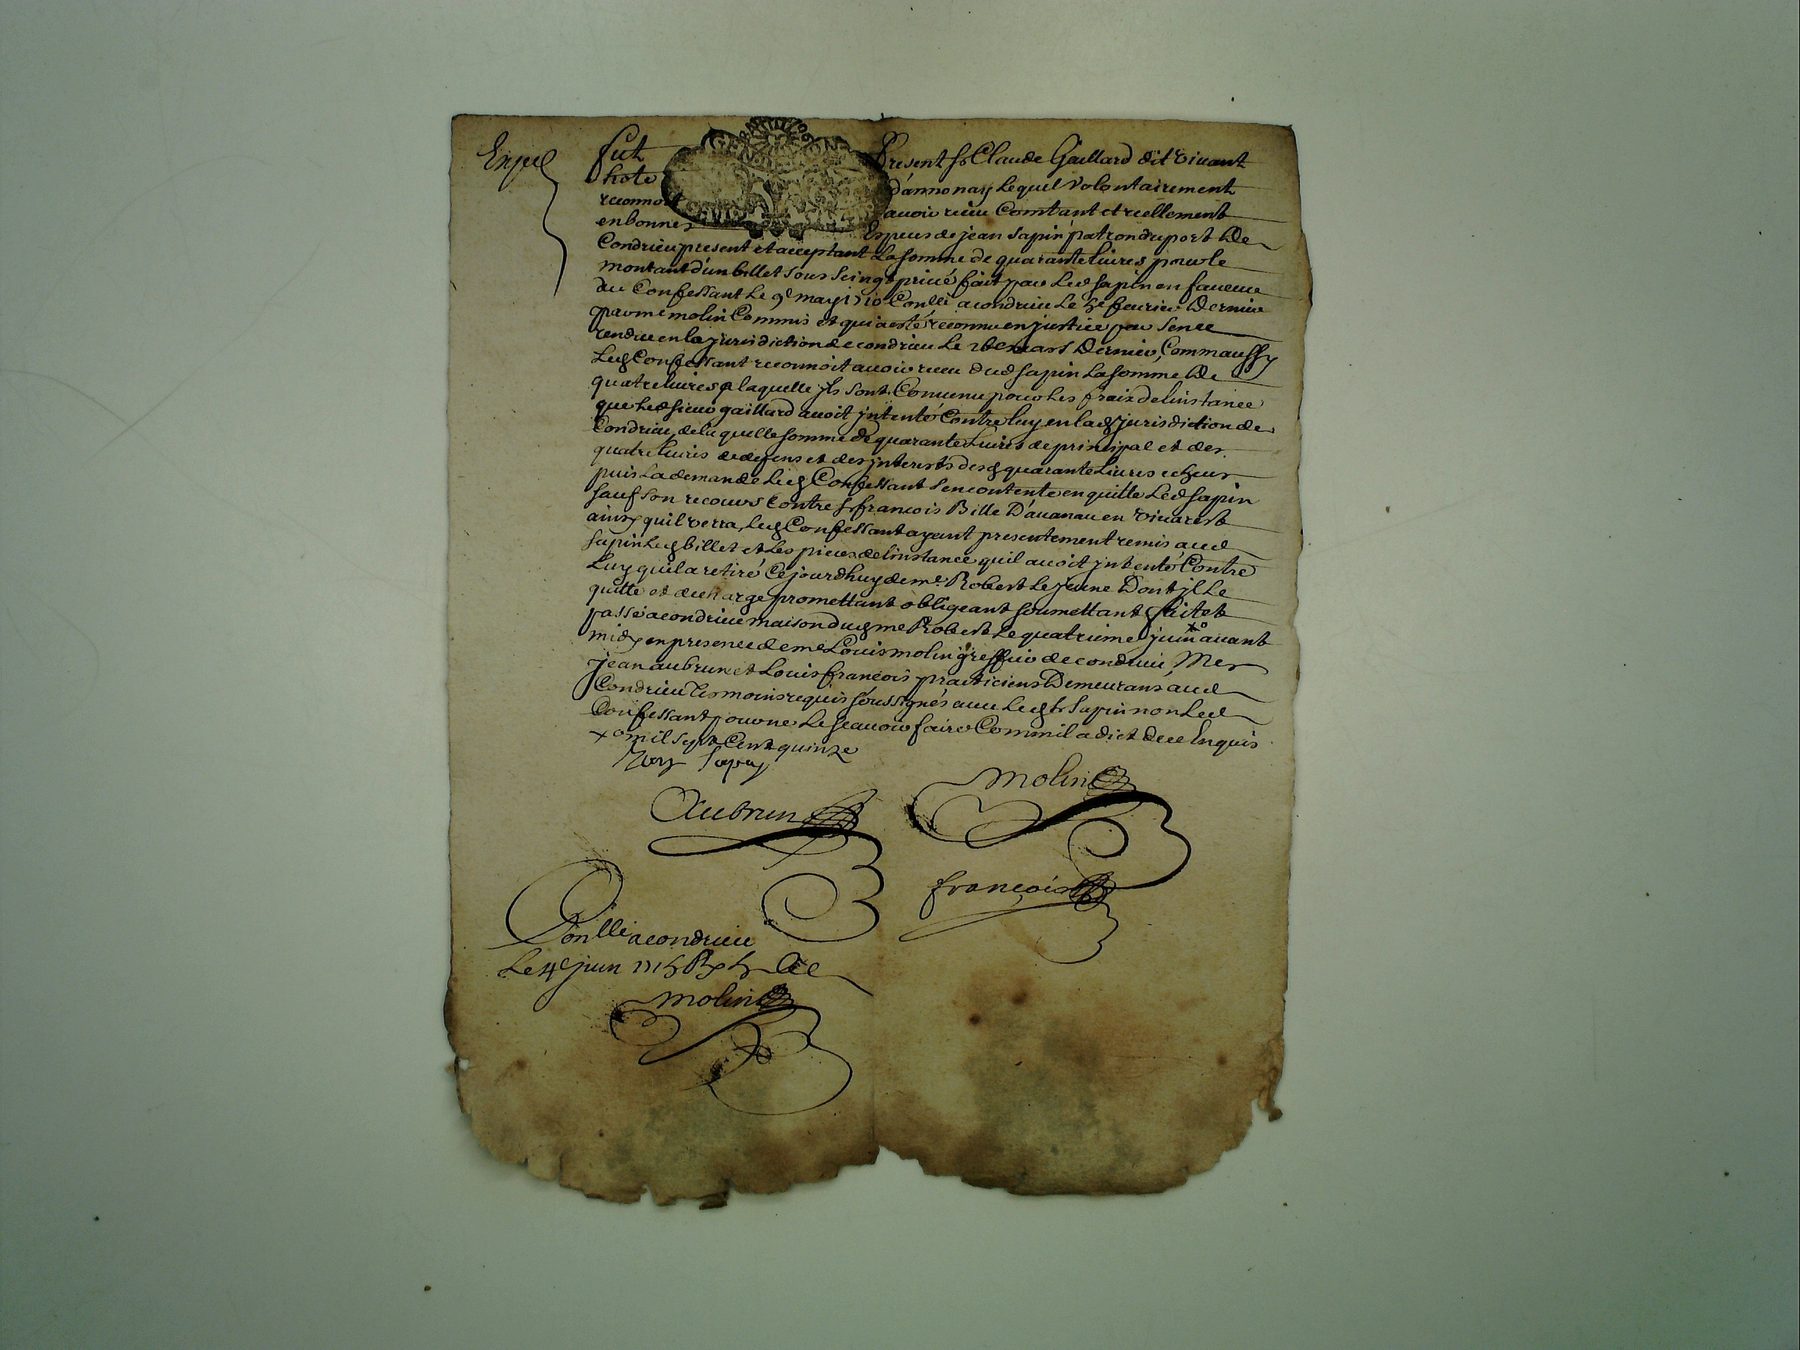 Expié
fut Present Sr Claude Gaillard dit vivant
hote d'annonay lequel volontairement
reconnoit avoir receu Comtant et reellement
en bonnes Especes de jean Sapin patron du port de
Condrieu present et acceptant La somme de quarante livres pour le
montant d'un billet sous seing privé fait par Led Sapin en faveur
du Confessant Le 9e may 1710 Conllé a condrieu Le 5e fevrier Dernier
par me molin Commis et qui a esté reconnu en justice par Sence
rendue en la jurisdiction de condrieu Le mars Dernier, Comm aussy
Led Confessant reconnoit avoir receu dud Sapin La somme De
quatre livres a laquelle jls sont Convenu pour les frais de linstance
que Led sieur gaillard avoit jntenté Contre luy en lad jurisdiction de
Condrieu, de la quelle somme de quarante Livres de principal et des
quatre livres de depens et des jnterests desd quarante Livres echeus
puis La demande Led Confessant sen contente en quitte Led Sapin
sauf son recours Contre Sr francois Bille D'avanau en vivarest
ainsy quil verra, Led Confessant ayant presentement remis aud
Sapin Led billet et Les pieces de linstance quil avoit jntenté Contre
Luy quil a retiré Cejourdhuy de me Robert Le jeune Dont jl Le
quitte et decharge promettant obligeant soumettant & fait et
passé a condrieu maison dud me Robert Le quatrieme juin avant
midy en presence de me Louis molin greffier de condrieu, Mes
jean aubrun et Louis francois praticiens Demeurans aud
Condrieu Tesmoins requis soussignés avec Led Sr Sapin non Led
Confessant pour ne Le scavoir faire Comm il a dict de ce Enquis
x mil sept Cent quinze
Sapin
Molin
Aubrun
françois
Conllé a condrieu
Le 4e juin 1715 R
Molin